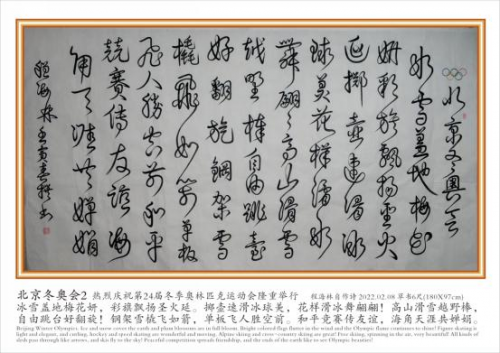 北京冬奥会
冰雪盖地梅花
妍彩旗飘扬圣火
延掷壶速滑冰
球美花样滑冰
舞翩翩高山滑雪
越野棒自由跳台
好翻旋钢架雪
橇飞如箭单板
飞人胜空前和平
竞赛传友谊海
角天涯共婵娟
程海林壬寅春撰书
北京冬奥会2 热烈庆祝第24届冬季奥林匹克运动会隆重举行 程海林自作诗 2022.02.08 草书6尺(180X97cm)
冰雪盖地梅花妍,彩旗飘扬圣火延。掷壶速滑冰球美,花样滑冰舞翩翩!高山滑雪越野棒,
自由跳台好翻旋!钢架雪橇飞如箭,单板飞人胜空前。和平竞赛传友谊,海角天涯共婵娟。
Beijing Winter Olympics, Ice and snow cover the earth and plum blossoms are in full bloom. Bright colored flags flutter in the wind and the Olympic flame continues to shine! Figure skating is
light and elegant, and curling, hockey and speed skating are wonderful and moving. Alpine skiing and cross-country skiing are great! Free skiing, spinning in the air, very beautiful! All kinds of
sleds pass through like arrows, and skis fly to the sky! Peaceful competition spreads friendship, and the ends of the earth are to make beautiful!